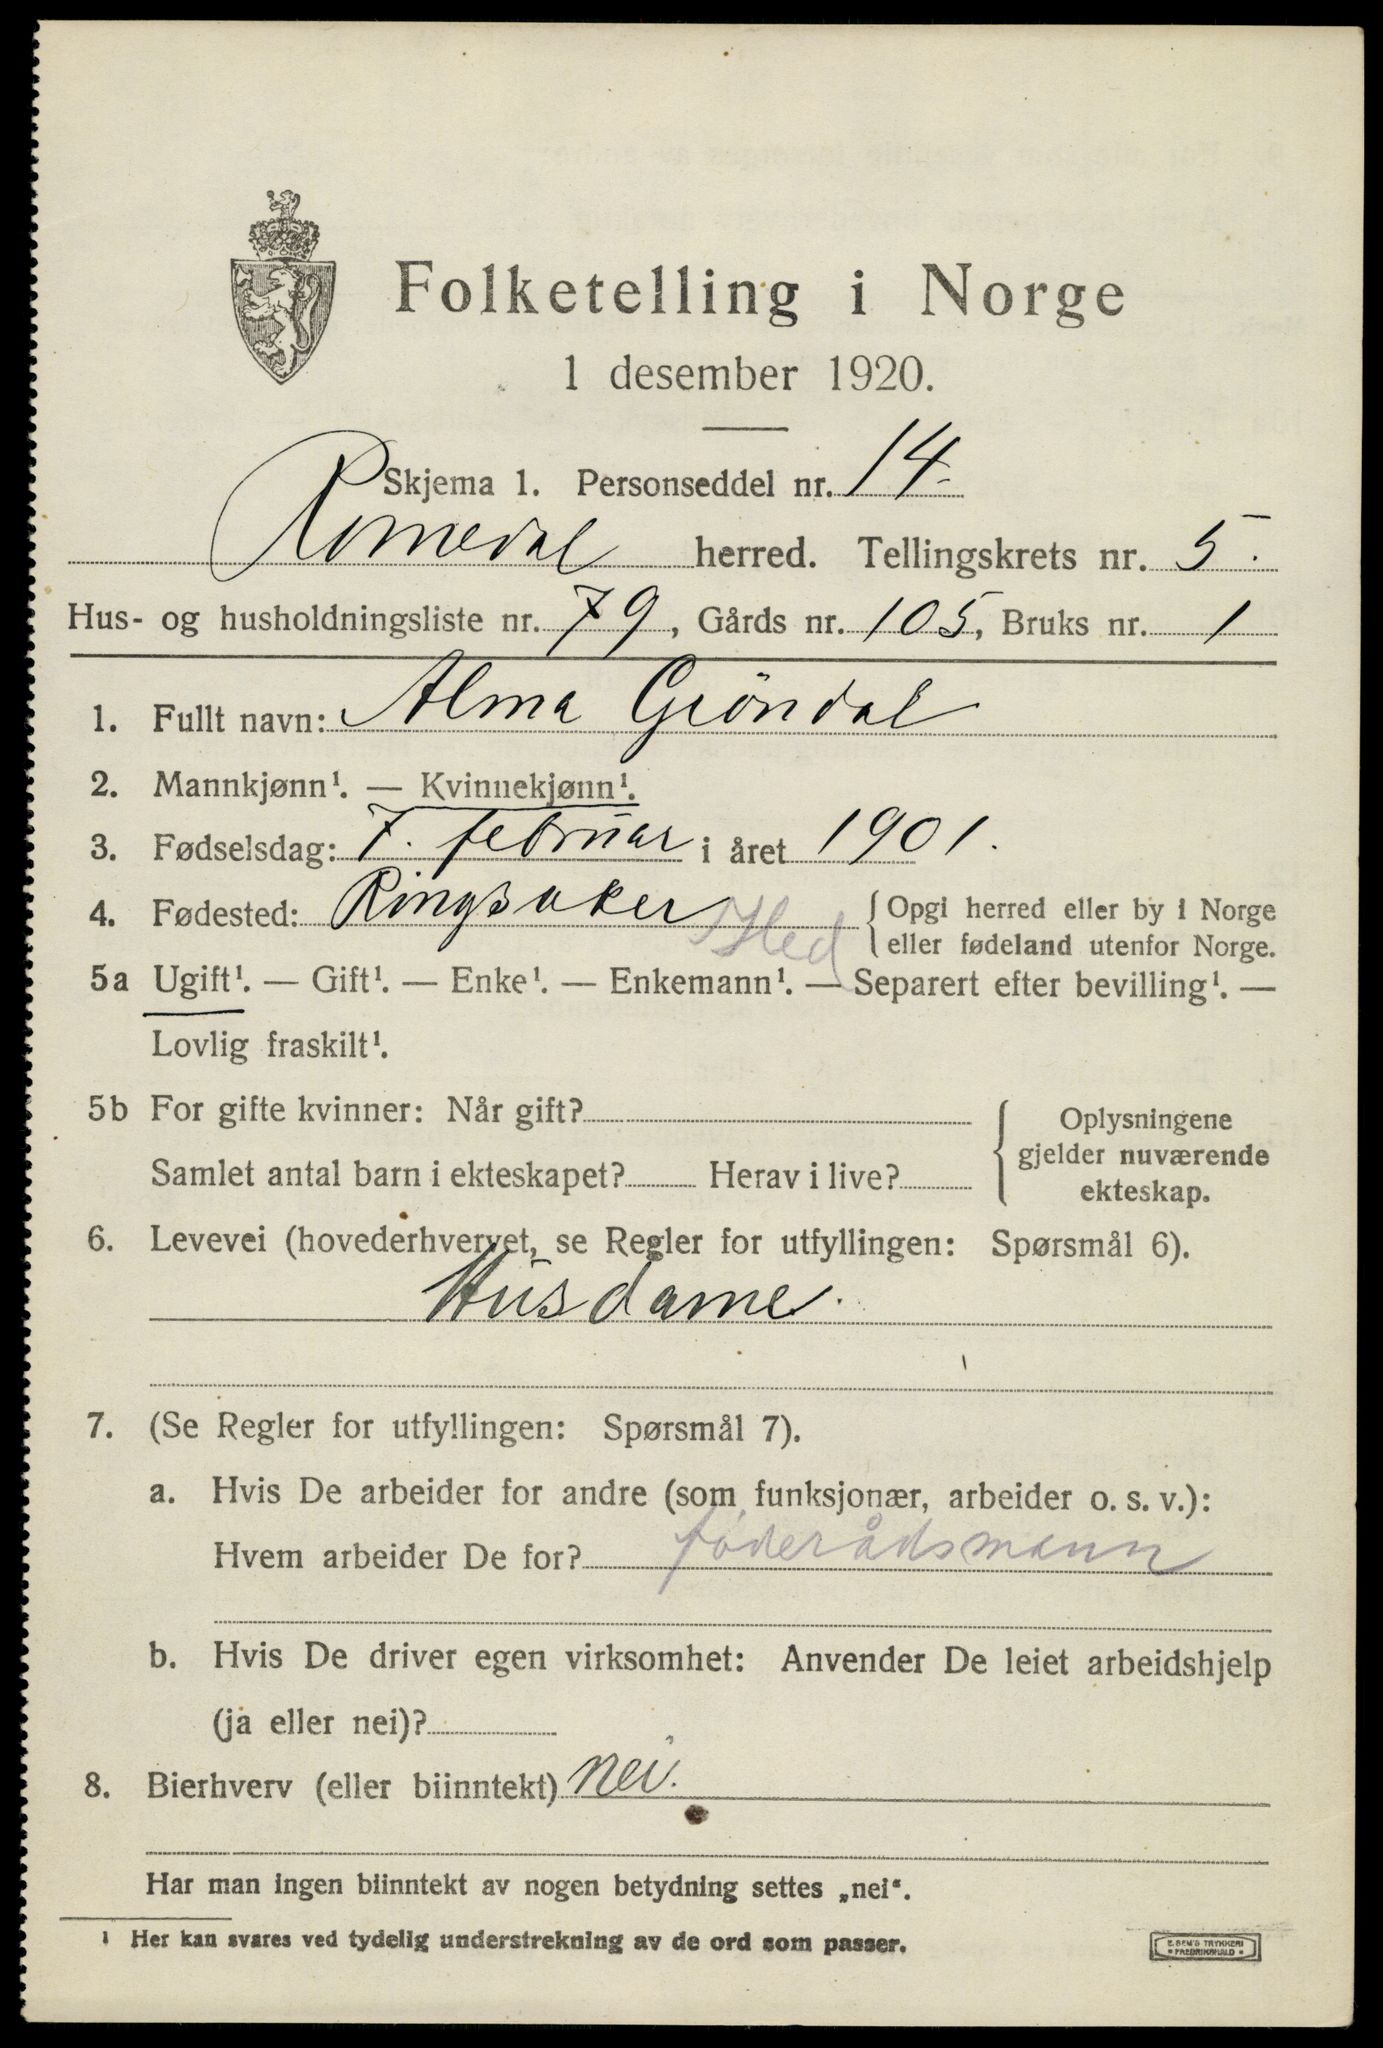 Folketelling i Norge
1 desember 1920.
Skjema 1. Personseddel nr. 14.
Romedal herred. Tellingskrets nr. 5.
Hus- og husholdningsliste nr. 79, Gårds nr. 105, Bruks nr. 1
1. Fullt navn: Alma Gröndal
2. Mannkjønn¹. — Kvinnekjønn¹.
3. Fødselsdag: 7. februar i året 1901.
4. Fødested: Ringsaker Hed {Opgi herred eller by i Norge
eller fødeland utenfor Norge.
5a Ugift¹. — Gift¹. — Enke¹. — Enkemann¹. — Separert efter bevilling¹. —
Lovlig fraskilt¹.
5b For gifte kvinner: Når gift?
Samlet antal barn i ekteskapet? Herav i live?
{Oplysningene
gjelder nuværende
ekteskap.
6. Levevei (hovederhvervet, se Regler for utfyllingen: Spørsmål 6).
Husdame.
7. (Se Regler for utfyllingen: Spørsmål 7).
a. Hvis De arbeider for andre (som funksjonær, arbeider o. s. v.):
Hvem arbeider De for? føderådsmann
b. Hvis De driver egen virksomhet: Anvender De leiet arbeidshjelp
(ja eller nei)?
8. Bierhverv (eller biinntekt) nei.
Har man ingen biinntekt av nogen betydning settes „nei“.
¹ Her kan svares ved tydelig understrekning av de ord som passer.
E. SEM'S TRYKKERI
• FREDRIKSHALD •